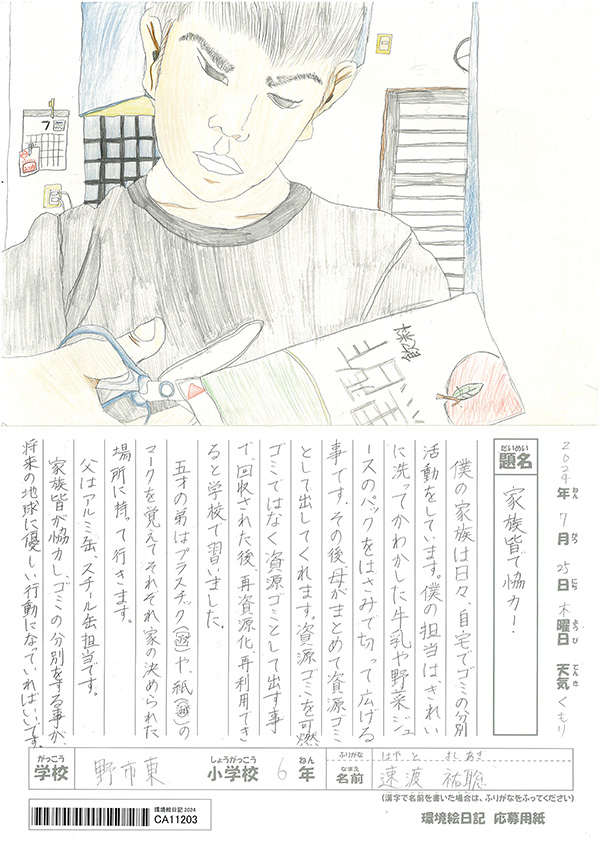 7
2024年 7月 25日 木曜日 天気 くもり
ねん がつ にち ようび てんき
だいめい
題名 家族皆で協力!
僕の家族は日々、自宅でゴミの分別
活動をしています。僕の担当は、きれい
に洗ってかわかした牛乳や野菜ジュ
ースのパックをはさみで切って広げる
事です。その後、母がまとめて資源ゴミ
として出してくれます。資源ゴミを可燃
ゴミではなく資源ゴミとして出す事
で、回収された後、再資源化、再利用でき
ると学校で習いました。
五才の弟はプラスチック()や、紙()の
マークを覚えてそれぞれ家の決められた
場所に持って行きます。
父はアルミ缶、スチール缶担当です。
家族皆が協力し、ゴミの分別をする事が、
将来の地球に優しい行動になっていればいいです。
がっこう しょうがっこう ねん ふりがな はやと よしあき
学校 野市東 小学校 6年 なまえ 名前 速波 祐聡
(漢字で名前を書いた場合は、ふりがなをふってください)
環境絵日記2024
CA11203
環境絵日記 応募用紙